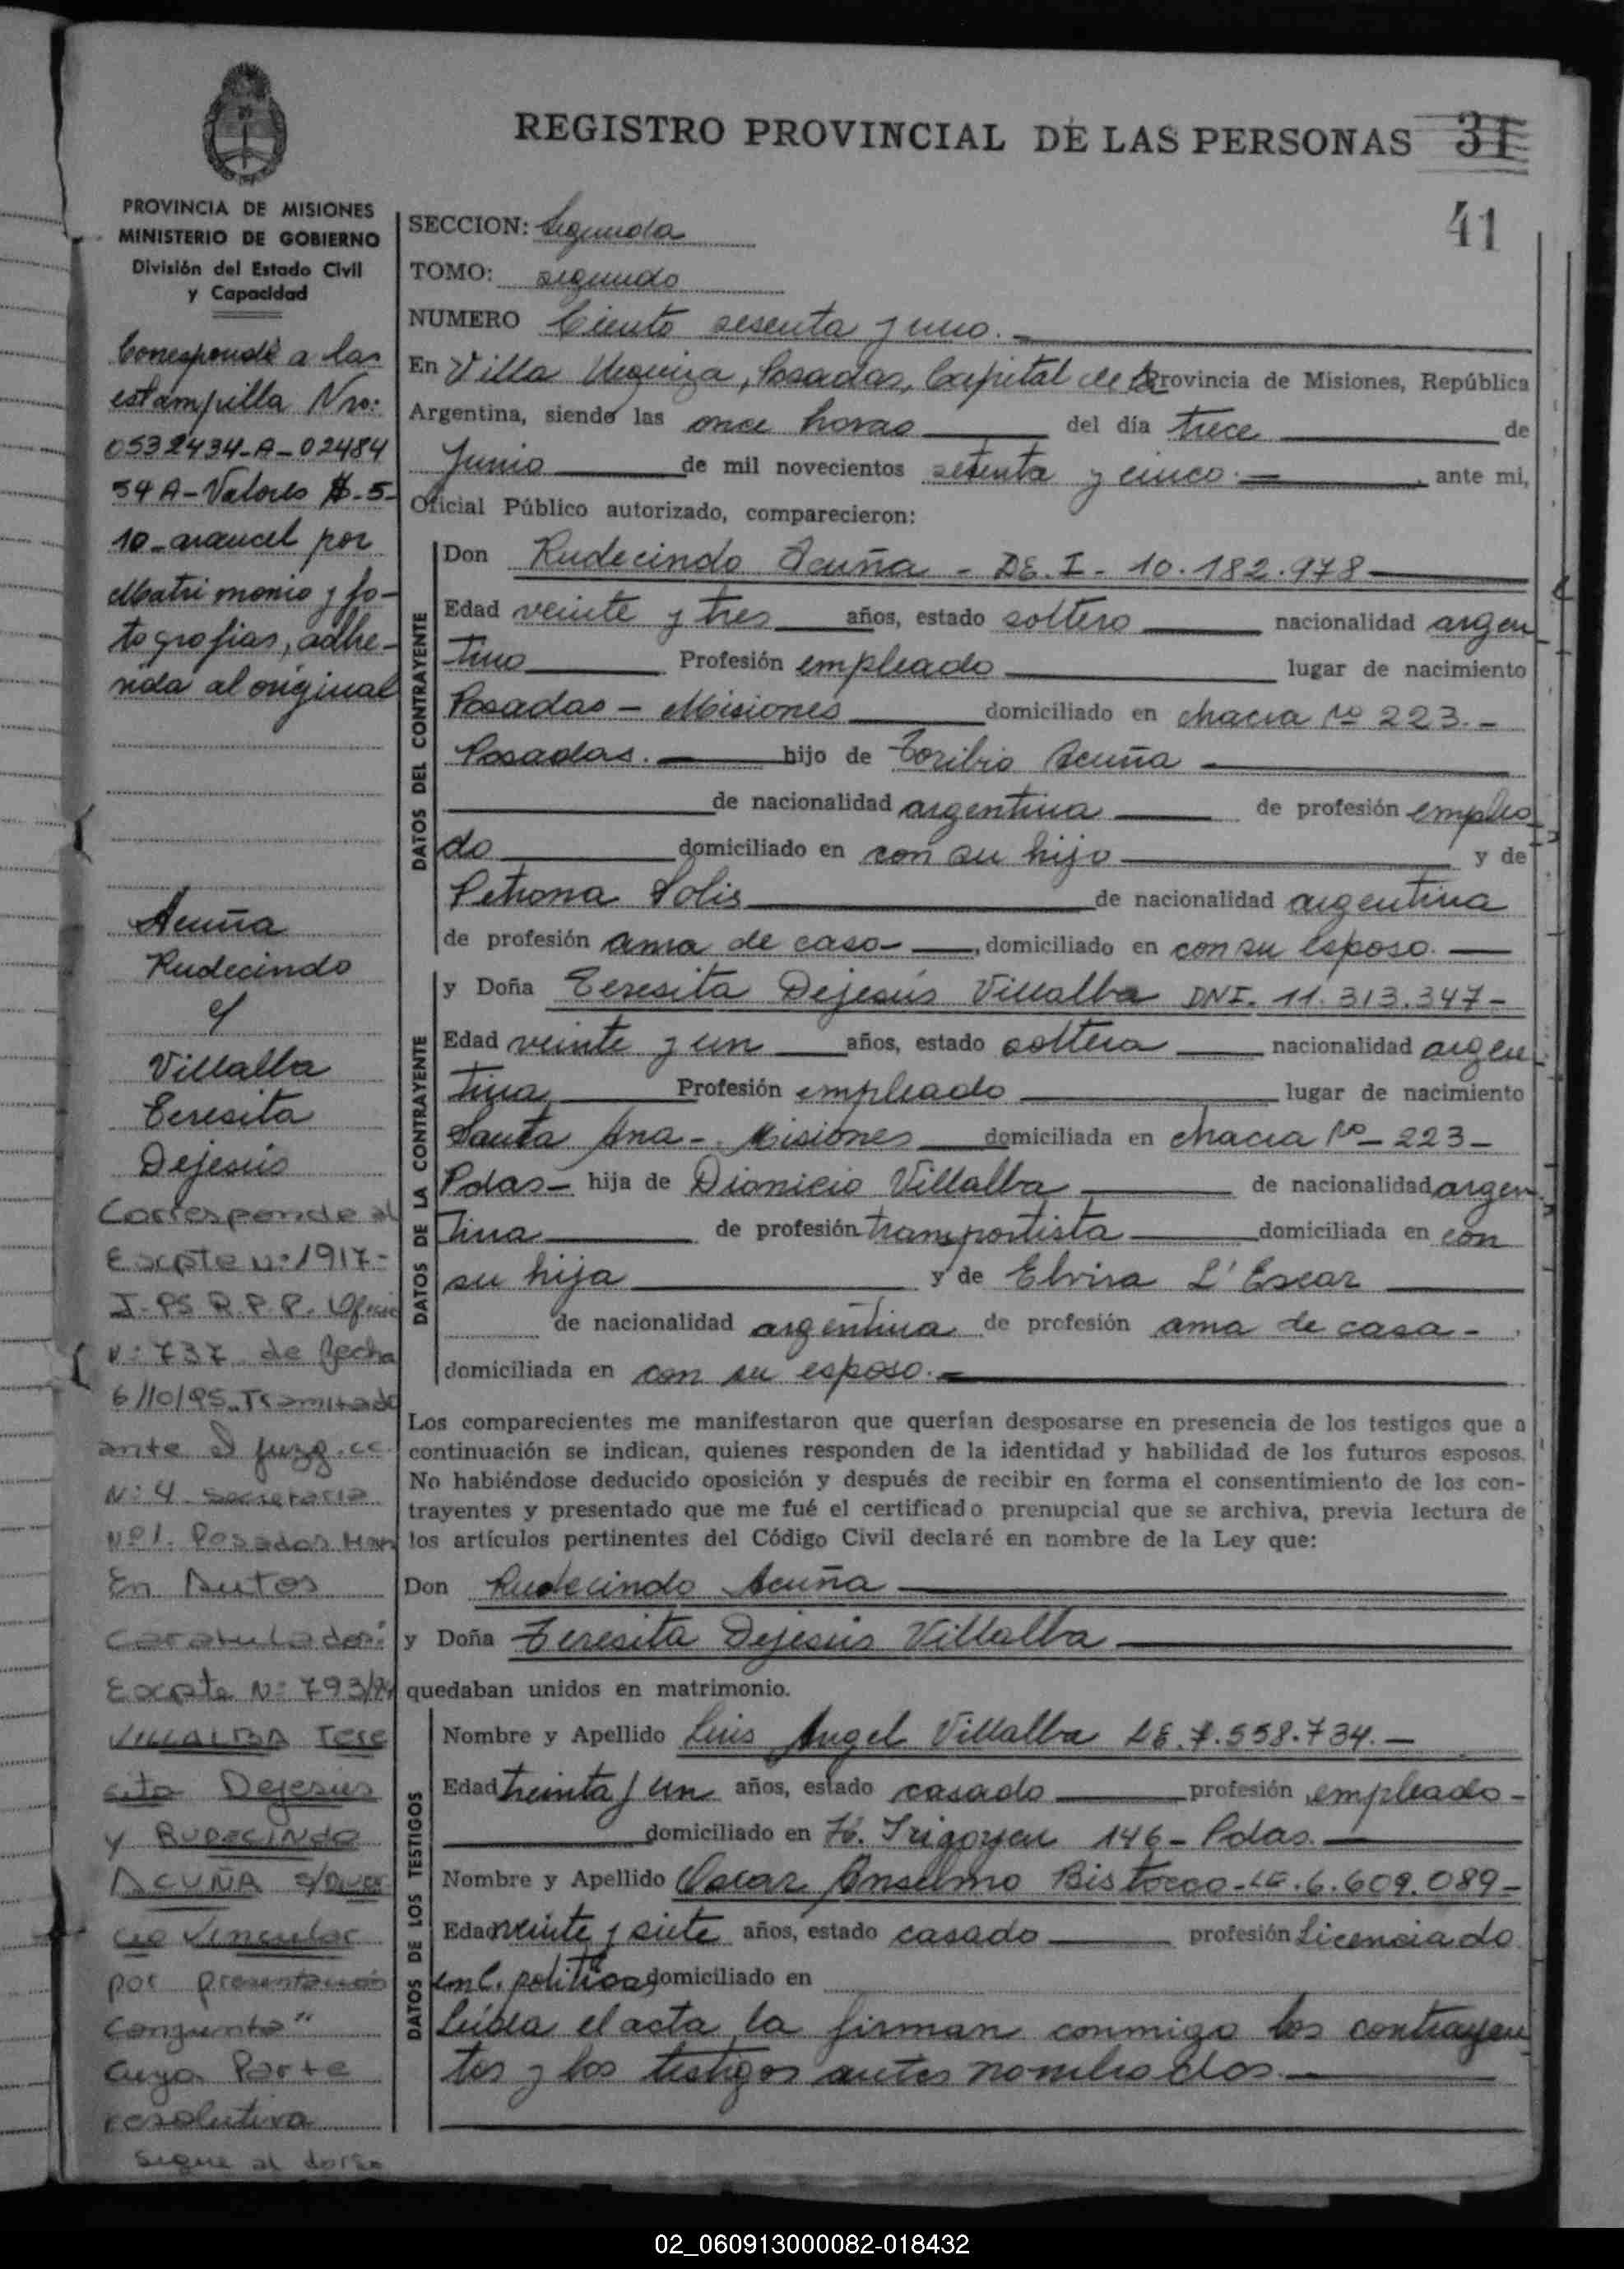 REGISTRO PROVINCIAL DE LAS PERSONAS 31
41
PROVINCIA DE MISIONES
MINISTERIO DE GOBIERNO
División del Estado Civil
y Capacidad
Corresponde a las
estampilla Nro:
0532434-A-02484
54 A-Valores $-5-
10-arancel por
Matrimonio y fo-
tografias, adhe-
rida al original
Acuña
Rudecindo
c/
Villalba
Teresita
Dejesús
Corresponde al
Excpte Nº 1917-
J-PS R.P.P. Oficio
Nº 737 de fecha
6/10/95. Tramitado
ante el Juzg. CC.
Nº 4 Secretaria
Nº 1. Posadas Mnes
En Autos
caratulados:
Excpte Nº 793/94
VILLALBA TERE
sita Dejesús
y RUDECINDO
ACUÑA s/Divor
cio Vincular
por presentación
conjunta"
Cuya Parte
resolutiva
Sigue al dorso
SECCION: Segunda
TOMO: segundo
NUMERO Ciento sesenta y uno.
En Villa Urquiza, Posadas, Capital de la Provincia de Misiones, República
Argentina, siendo las once horas del día trece de
Junio de mil novecientos setenta y cinco.- , ante mi,
Oficial Público autorizado, comparecieron:
DATOS DEL CONTRAYENTE
Don Rudecindo Acuña - DE. I- 10.182.978
Edad veinte y tres años, estado soltero nacionalidad argen
tino Profesión empleado lugar de nacimiento
Posadas - Misiones domiciliado en chacra Nº 223.-
Posadas. hijo de Toribio Acuña
de nacionalidad argentina de profesión emplea
do domiciliado en con su hijo y de
Petrona Solis de nacionalidad argentina
de profesión ama de casa- , domiciliado en con su esposo.
DATOS DE LA CONTRAYENTE
y Doña Teresita Dejesús Villalba DNI. 11.313.347-
Edad veinte y un años, estado soltera nacionalidad argen
tina Profesión empleado lugar de nacimiento
Santa Ana - Misiones domiciliada en chacra Nº- 223-
Pdas- hija de Dionicio Villalba de nacionalidad argen
tina de profesión transportista domiciliada en con
su hija y de Elvira L'Escar
de nacionalidad argentina de profesión ama de casa-
domiciliada en con su esposo.-
Los comparecientes me manifestaron que querían desposarse en presencia de los testigos que a
continuación se indican, quienes responden de la identidad y habilidad de los futuros esposos.
No habiéndose deducido oposición y después de recibir en forma el consentimiento de los con-
trayentes y presentado que me fué el certificado prenupcial que se archiva, previa lectura de
los artículos pertinentes del Código Civil declaré en nombre de la Ley que:
Don Rudecindo Acuña
y Doña Teresita Dejesús Villalba
quedaban unidos en matrimonio.
DATOS DE LOS TESTIGOS
Nombre y Apellido Luis Angel Villalba LE. 7.558.734.-
Edad treinta y un años, estado casado profesión empleado-
domiciliado en H. Irigoyen 146- Pdas.
Nombre y Apellido Oscar Anselmo Bistocco-LE.6.609.089-
Edad veinte y siete años, estado casado profesión Licenciado
en C. politicas domiciliado en
Leída el acta, la firman conmigo los contrayen
tes y los testigos antes nombrados.
02_060913000082-018432